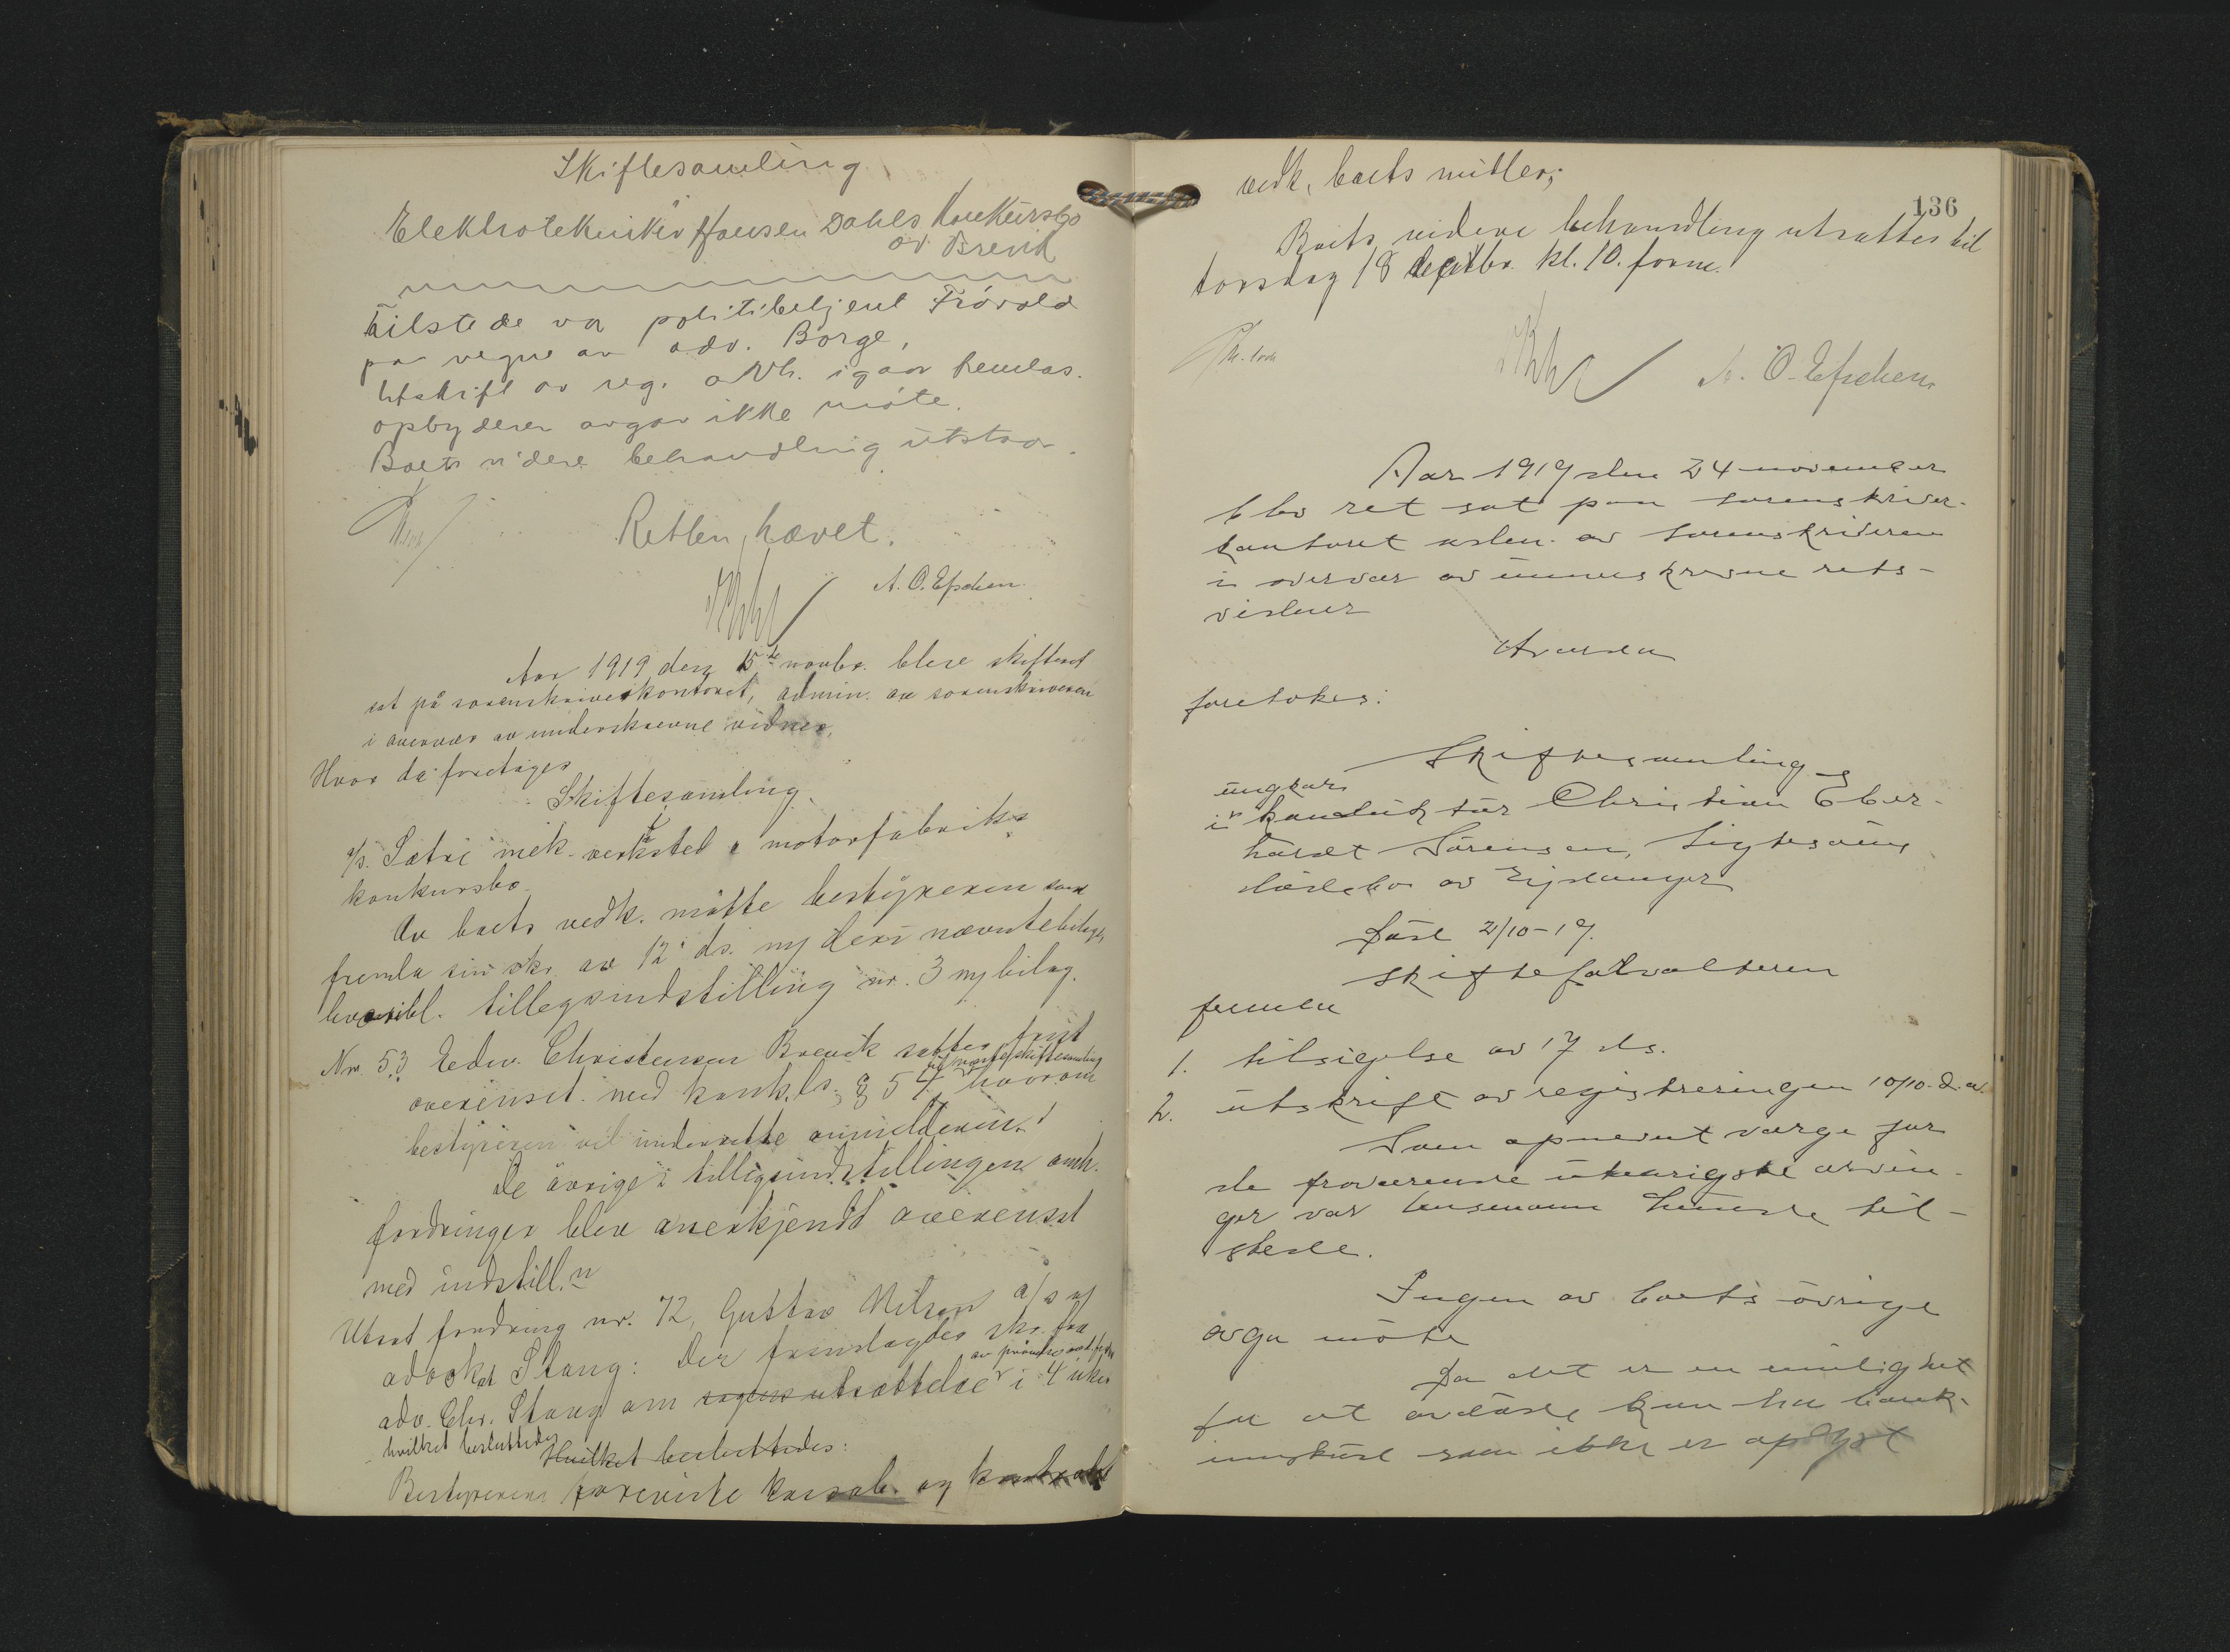 Skiftesamling
Elektrotekniker Hansen Dahls konkursbo
av Brevik
Tilstede var politibetjent Trövold
på vegne av adv. Borge,
Utskrift av reg. igaar fremlas.
opbyderen avgav ikke möte.
Boets videre behandling utstaar.
Retten hævet.
A. O. Eschen
Aar 1919 den 15de novbr. blev skifteret
sat på sorenskriverkontoret, admin. av sorenskriveren
i overvær av underskrevne vidner,
Hvor da foretages
Skiftesamling
a/s. Sætre mek. verksted & motorfabriks
konkursbo
Av boets vedk. mötte bestyreren som
fremla sin skr. av 12 ds. m/ deri nævnte bilag,
tillegsindstilling nr. 3 m/ bilag.
Nr. 53 Edw. Christensen Brevik sattes frist
til næste skiftesamling
overenst. med konk.ls. § 54 hvorom
bestyreren vil underrette anmelderen.
De övrige i tillegsindstillingen omh.
fordringer blev anerkjendt overensst
med indstill.n
Utsat fordring nr. 72, Gustav Nilsen a/s v/
advokat Stang: Der fremlagdes skr. fra
av prövelse av ford.
adv. Chr. Stang om sagens utsættelse i 4 uker
hvilket besluttedes
Hvilket besluttedes:
Bestyreren foreviste kassab. og
vedk. boets midler;
136
Boets videre behandling utsattes til
torsdag 18 decbr. kl. 10. form.
A. O. Eschen
Aar 1919 den 24 november
blev ret sat paa sorenskriver-
kontoret aden. av sorenskriveren
i overvær av underskrevne rets-
vidner
Hvorda
foretokes:
Skiftesamling
ungkar
i konduktør Christian Eber-
hardt Sörensen, Sigtesöens
dödsbo av Eidanger
Död 2/10-19.
Skifteforvalteren
fremla
1. tilsigelse av 17 ds.
2. utskrift av registreringen 10/10. d.a.
Som opnevnt værge for
de fraværende utenrigske arvin-
ger var lensmann Lunde til-
stede.
Ingen av boets övrige
avga möte
Da det er en mulighet
for at avdöde kan ha bank-
innskud som ikke er oplyst